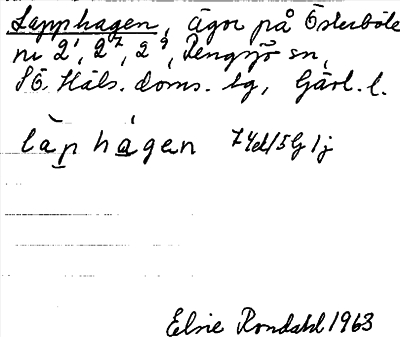 Lapphagen, ägor på Österböle
nr 2¹, 2⁷, 2⁹, Rengsjö sn,
SÖ Häls. doms. tg, Gävl. l.
làp hágen 7 Yed/5 G 1j
Elsie Rondahl 1963